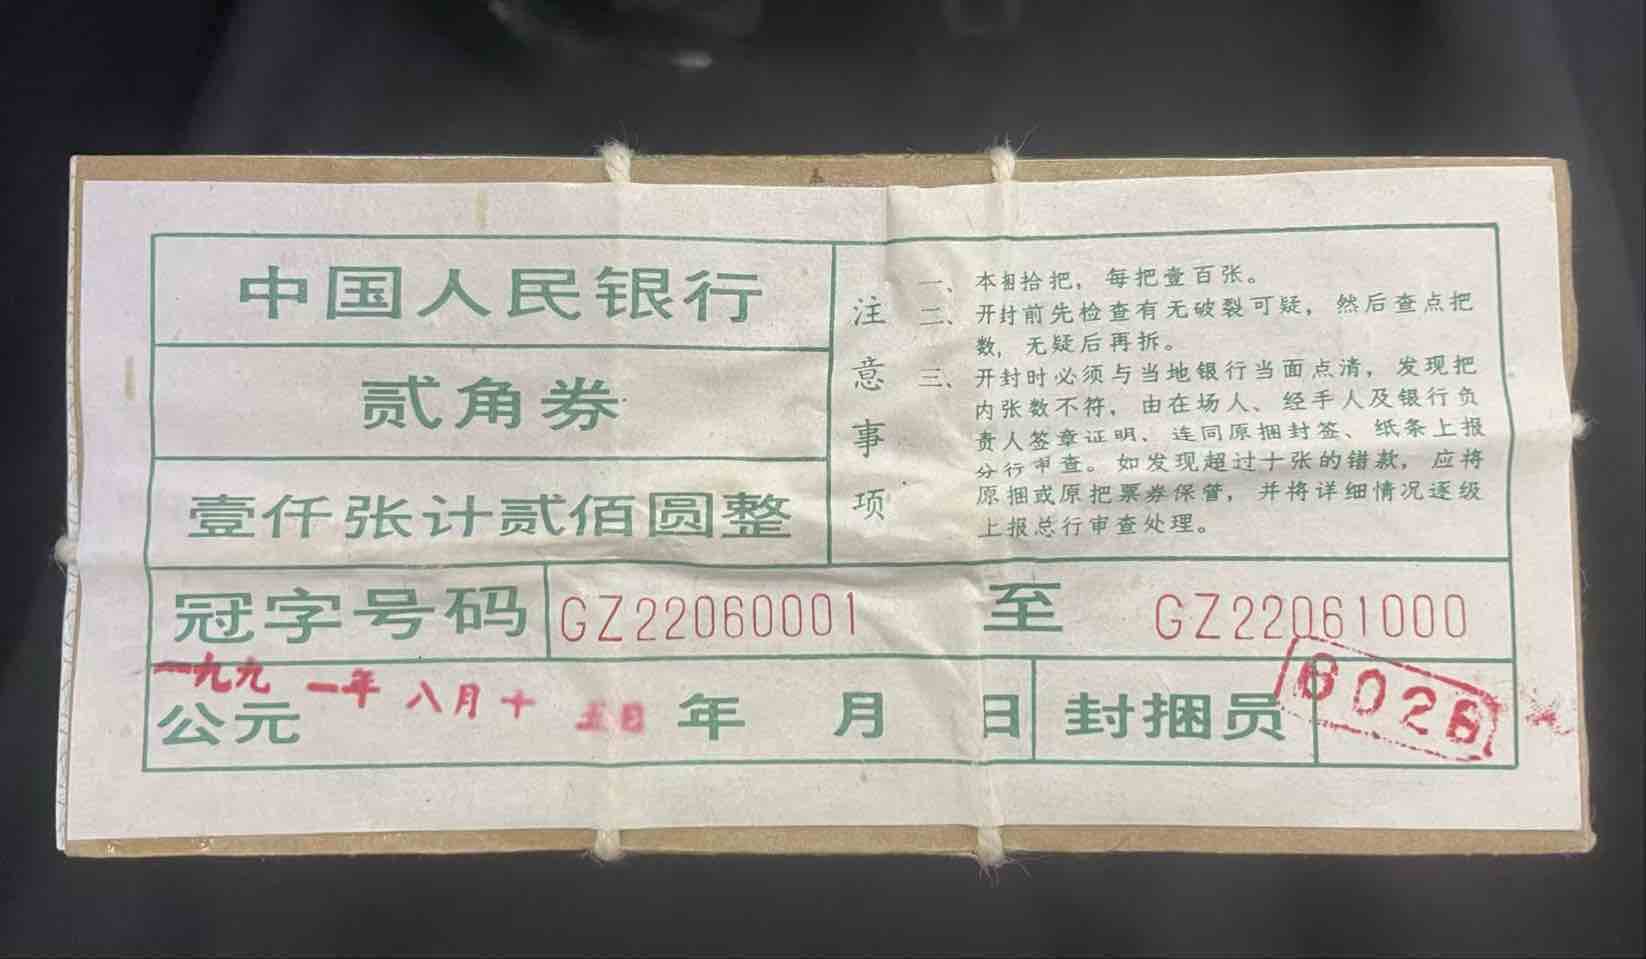 中国人民银行
贰角券
壹仟张计贰佰圆整
注意事项
一、本捆拾把，每把壹百张。
二、开封前先检查有无破裂可疑，然后查点把
数，无疑后再拆。
三、开封时必须与当地银行当面点清，发现把
内张数不符，由在场人、经手人及银行负
责人签章证明、连同原捆封签、纸条上报
分行审查。如发现超过十张的错款，应将
原捆或原把票券保管，并将详细情况逐级
上报总行审查处理。
冠字号码 GZ22060001 至 GZ22061000
一九九一年八月十五日
公元 年 月 日 封捆员 6026